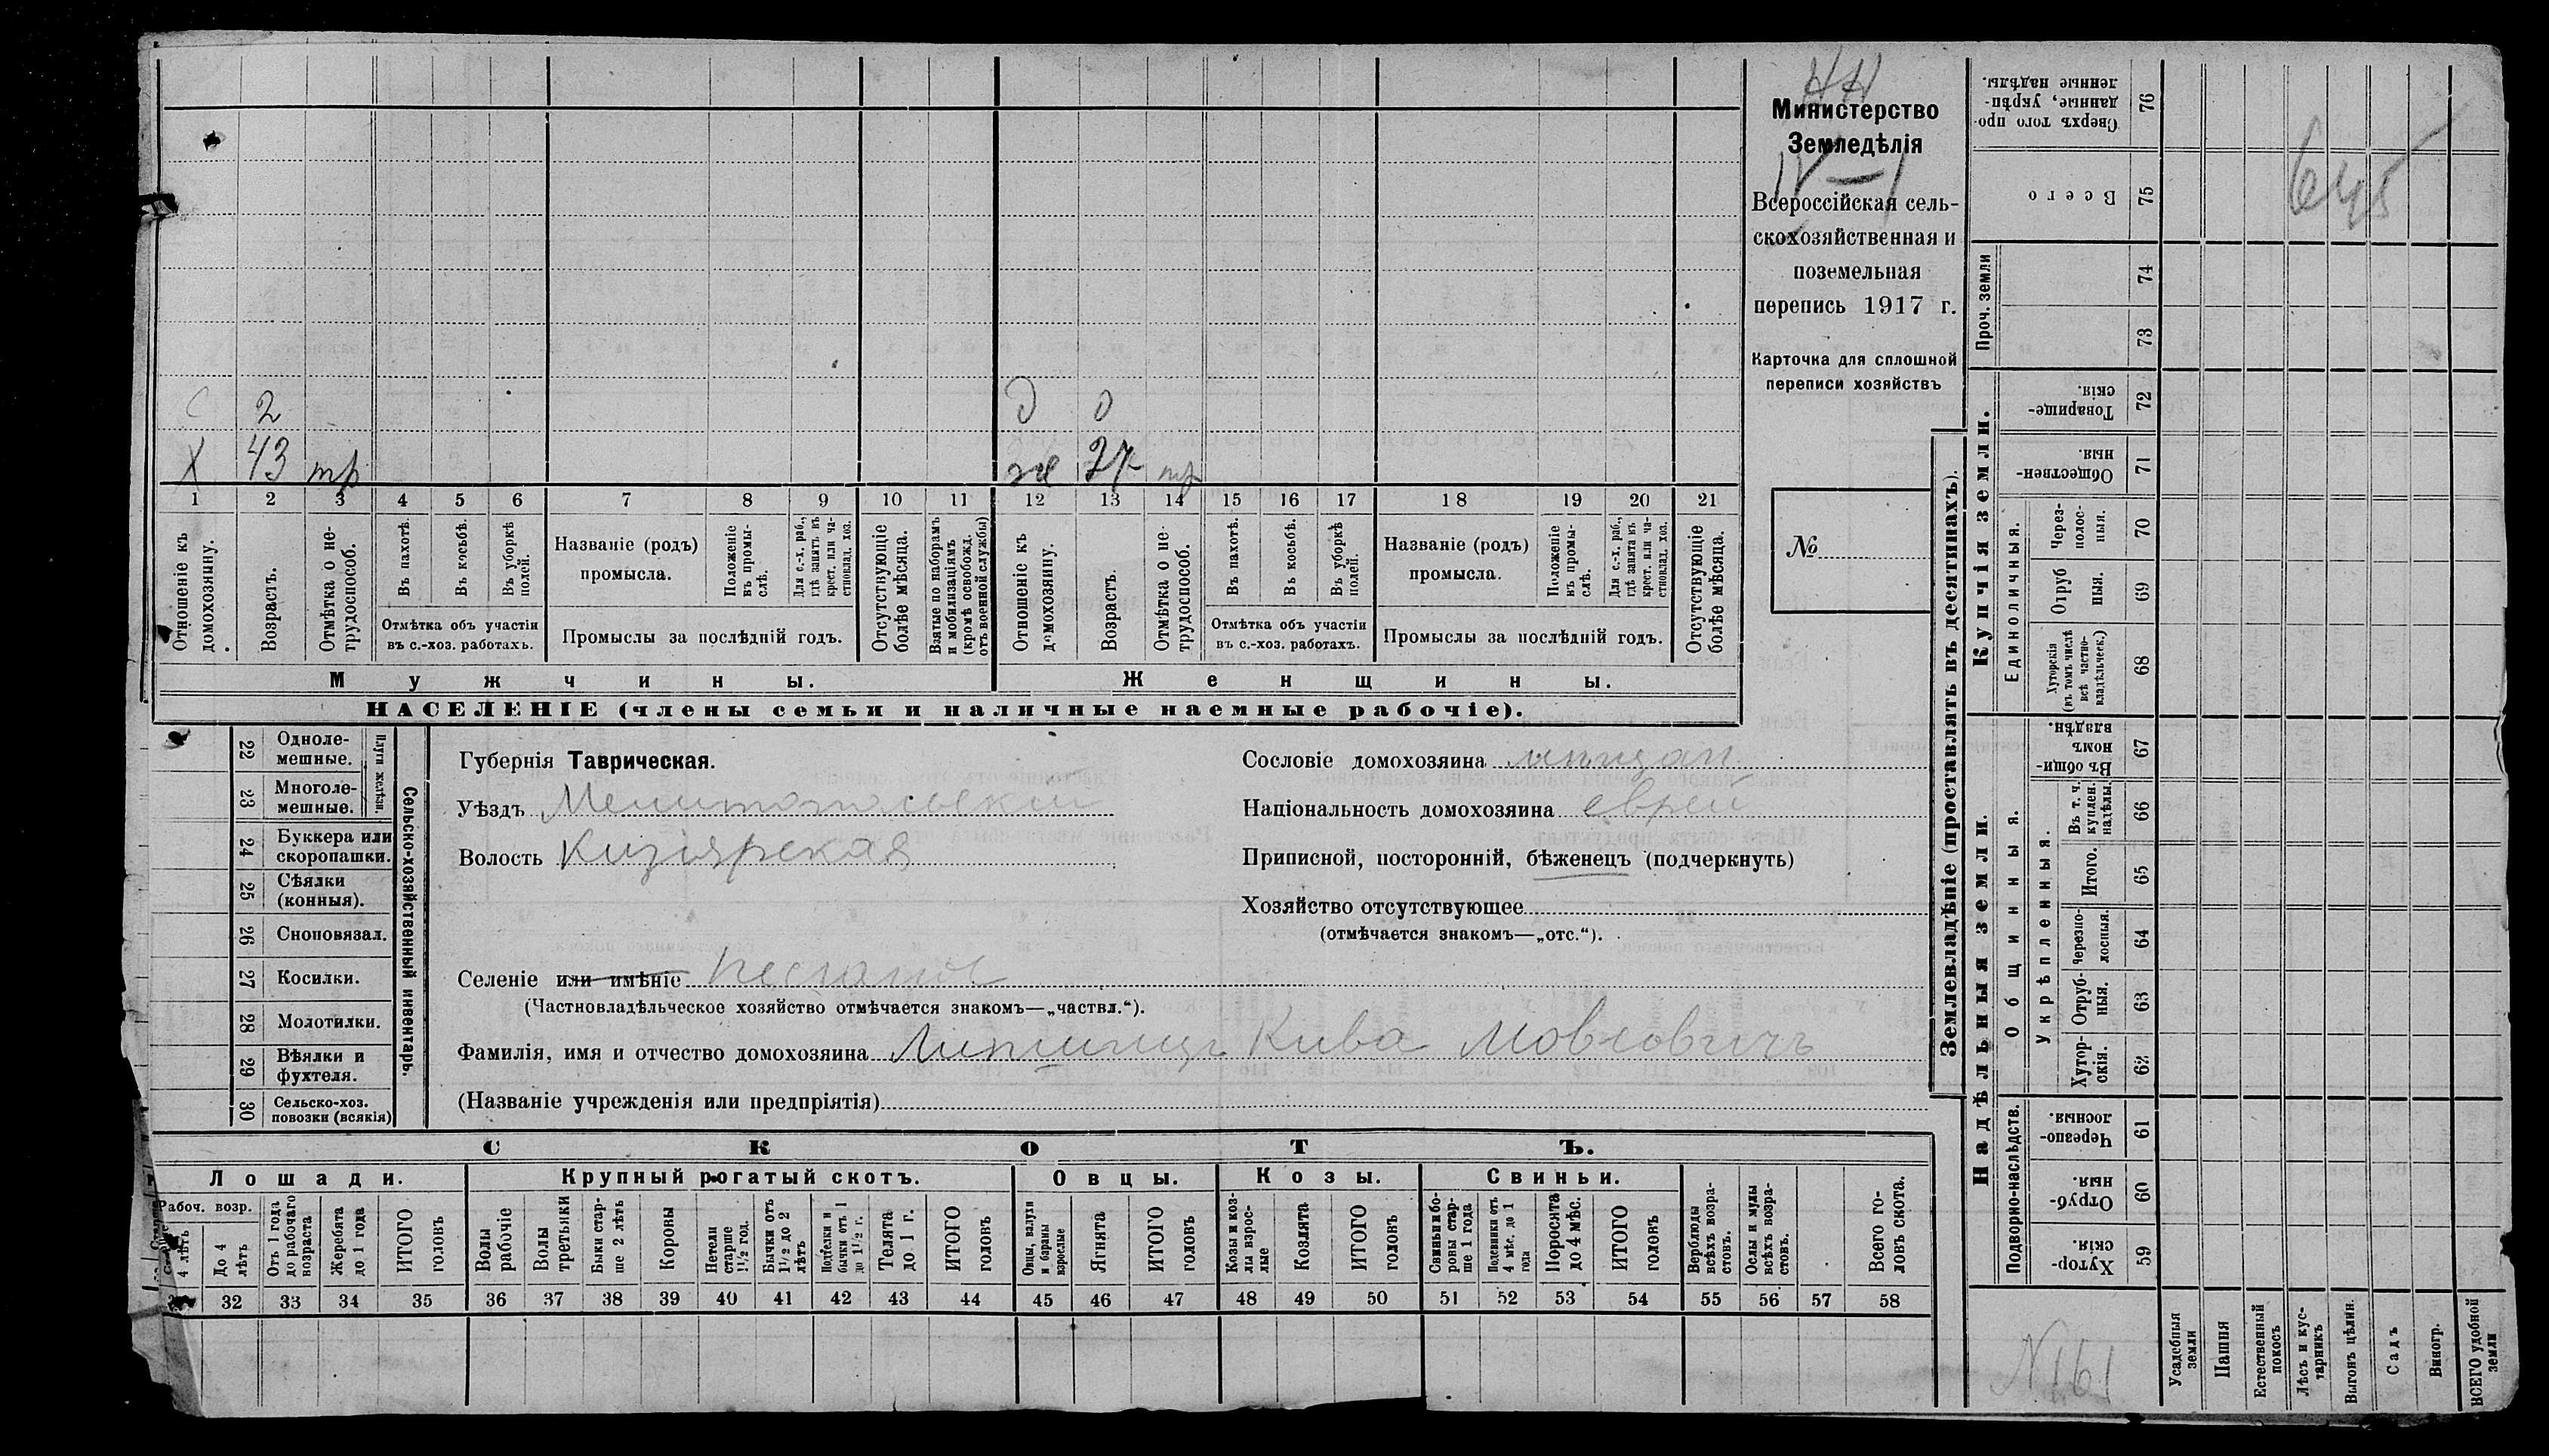 НН
Министерство
Земледѣлія
IV — 1
Всероссійская сель-
скохозяйственная и
поземельная
перепись 1917 г.
Карточка для сплошной
переписи хозяйствъ
№
С 2
Х 43 тр
Д 0
ж 37 тр
1 2 3 4 5 6 7 8 9 10 11 12 13 14 15 16 17 18 19 20 21
Отношеніе къ
домохозяину.
Возрастъ.
Отмѣтка о не-
трудоспособ.
Въ пахотѣ.
Въ косьбѣ.
Въ уборкѣ
полей.
Отмѣтка объ участіи
въ с.-хоз. работахъ.
Названіе (родъ)
промысла.
Положеніе
въ промы-
слѣ.
Для с.-х. раб.,
гдѣ занятъ въ
крест. или ча-
стновлад. хоз.
Промыслы за послѣдній годъ.
Отсутствующіе
болѣе мѣсяца.
Взятые по наборамъ
и мобилизаціямъ
(кромѣ освобожд.
отъ военной службы)
Отношеніе къ
домохозяину.
Возрастъ.
Отмѣтка о не-
трудоспособ.
Въ пахотѣ.
Въ косьбѣ.
Въ уборкѣ
полей.
Отмѣтка объ участіи
въ с.-хоз. работахъ.
Названіе (родъ)
промысла.
Положеніе
въ промы-
слѣ.
Для с.-х. раб.,
гдѣ занята въ
крест. или ча-
стновлад. хоз.
Промыслы за послѣдній годъ.
Отсутствующіе
болѣе мѣсяца.
Мужчины.
Женщины.
НАСЕЛЕНІЕ (члены семьи и наличные наемные рабочіе).
22 Одноле-
мешные.
23 Многоле-
мешные.
Плуги желѣзн.
24 Буккера или
скоропашки.
25 Сѣялки
(конныя).
26 Сноповязал.
27 Косилки.
28 Молотилки.
29 Вѣялки и
фухтеля.
30 Сельско-хоз.
повозки (всякія)
Сельско-хозяйственный инвентарь.
Губернія Таврическая.
Уѣздъ Мелитопольскій
Волость Кизіярская
Селеніе или имѣніе
(Частновладѣльческое хозяйство отмѣчается знакомъ—„частвл.“).
Сословіе домохозяина мѣщан.
Національность домохозяина еврей
Приписной, посторонній, бѣженецъ (подчеркнуть)
Хозяйство отсутствующее
(отмѣчается знакомъ—„отс.“).
Фамилія, имя и отчество домохозяина Липшицъ Кива Мовсовичъ
(Названіе учрежденія или предпріятія)
СКОТЪ.
Лошади.
Рабоч. возр.
4 лѣтъ
До 4
лѣтъ
Отъ 1 года
до рабочаго
возраста
Жеребята
до 1 года
ИТОГО
головъ
Крупный рогатый скотъ.
Волы
рабочіе
Волы
третьяки
Быки стар-
ше 2 лѣтъ
Коровы
Нетели
старше
1½ год.
Бычки отъ
1½ до 2
лѣтъ
Подтелки и
бычки отъ 1
до 1½ г.
Телята
до 1 г.
ИТОГО
головъ
Овцы.
Овцы, валухи
и бараны
взрослые
Ягнята
ИТОГО
головъ
Козы.
Козы и коз-
лы взрос-
лые
Козлята
ИТОГО
головъ
Свиньи.
Свиньи и бо-
ровы стар-
ше 1 года
Подсвинки отъ
4 мѣс. до 1
года
Поросята
до 4 мѣс.
ИТОГО
головъ
Верблюды
всѣхъ возра-
стовъ.
Ослы и мулы
всѣхъ возра-
стовъ.
Всего го-
ловъ скота.
32 33 34 35 36 37 38 39 40 41 42 43 44 45 46 47 48 49 50 51 52 53 54 55 56 57 58
Землевладѣніе (проставлять въ десятинахъ).
Купчія земли.
Сверхъ того про-
данные, укрѣп-
ленные надѣлы. 76
Всего 75
Проч. земли
74
73
Товарище-
скія. 72
Обществен-
ныя. 71
Единоличныя.
Через-
полос-
ныя. 70
Отруб
ныя. 69
Хуторскія
(въ томъ числѣ
всѣ частно-
владѣльческ.) 68
Надѣльныя земли.
Общинныя.
Въ общин-
номъ
владѣн. 67
Укрѣпленныя.
Въ т. ч.
куплен.
надѣлы. 66
Итого. 65
Черезпо-
лосныя. 64
Отруб-
ныя. 63
Хутор-
скія. 62
Подворно-наслѣдств.
Черезпо-
лосныя. 61
Отруб-
ныя. 60
Хутор-
скія. 59
Усадебныя
земли
Пашня
Естественный
покосъ
Лѣсъ и кус-
тарникъ
Выгонъ цѣлин.
Садъ
Виногр.
ВСЕГО удобной
земли
645
N 161